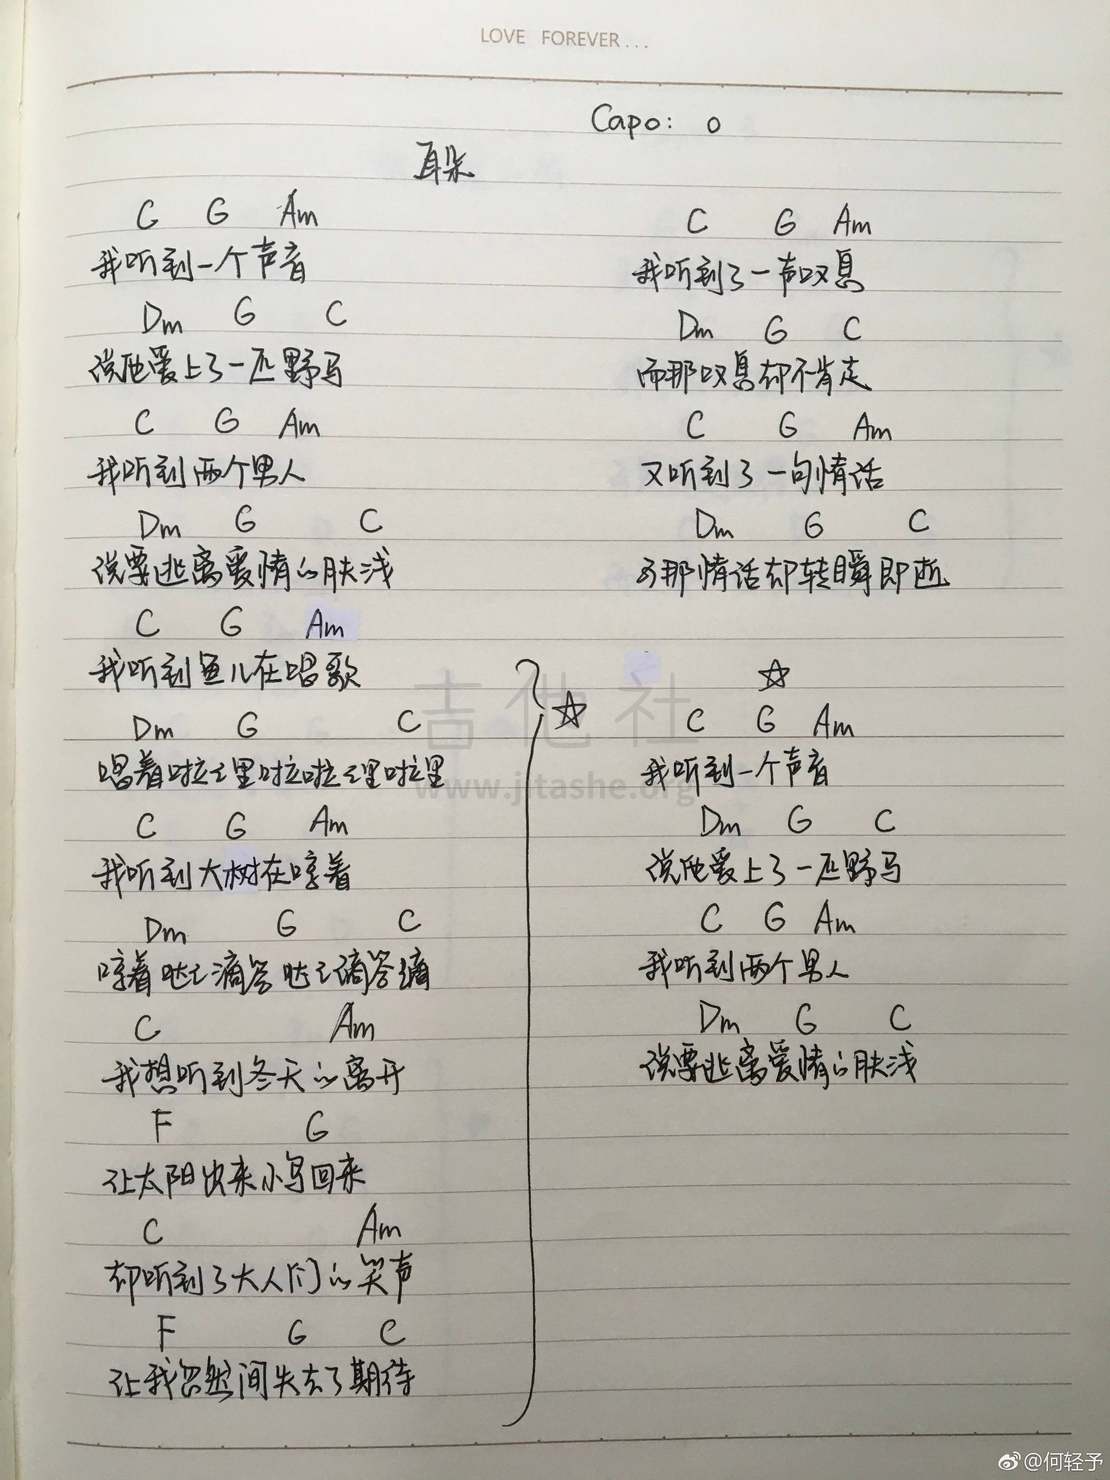 LOVE FOREVER...
Capo: 0
耳朵
C G Am
我听到一个声音
Dm G C
说他爱上了一匹野马
C G Am
我听到两个男人
Dm G C
说要逃离爱情的肤浅
C G Am
我听到鱼儿在唱歌
Dm G C
唱着啦啦里啦啦啦里啦里
C G Am
我听到大树在哼着
Dm G C
哼着哒哒滴答哒哒滴答滴
C Am
我想听到冬天的离开
F G
让太阳出来小鸟回来
C Am
却听到了大人们的笑声
F G C
让我忽然间失去了期待
☆
C G Am
我听到了一声叹息
Dm G C
而那叹息却不肯走
C G Am
又听到了一句情话
Dm G C
可那情话却转瞬即逝
☆
C G Am
我听到一个声音
Dm G C
说他爱上了一匹野马
C G Am
我听到两个男人
Dm G C
说要逃离爱情的肤浅
吉他社
www.jitashe.org
@何轻予